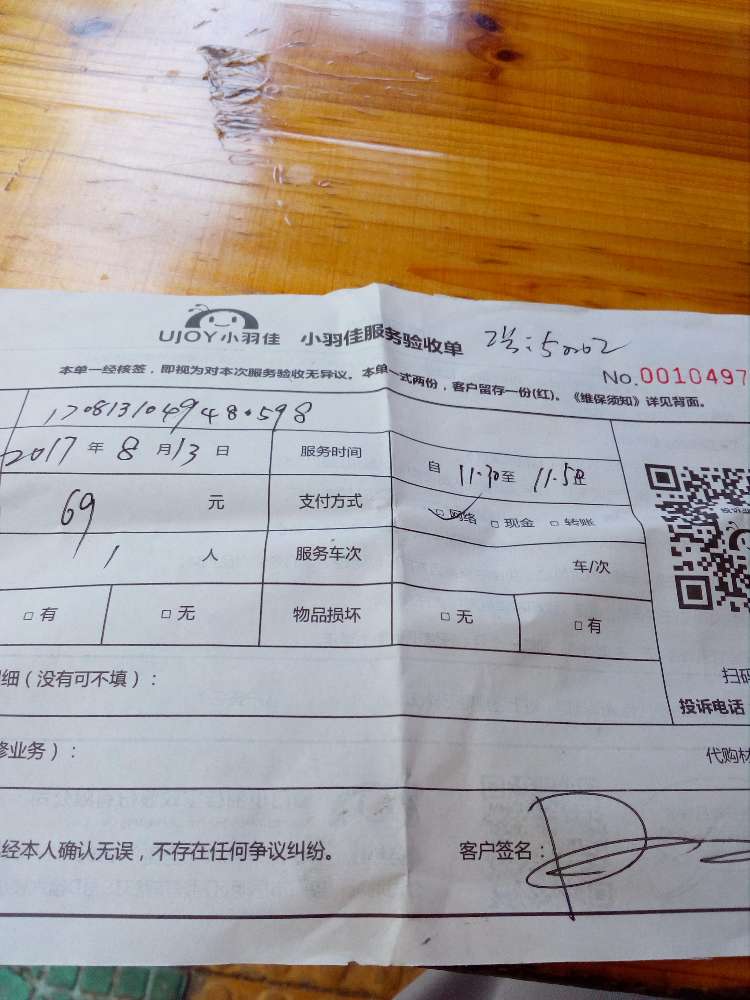 UJOY小羽佳 小羽佳服务验收单
No.0010497
本单一经核签，即视为对本次服务验收无异议。本单一式两份，客户留存一份(红)。《维保须知》详见背面。
1708131049480598
2017 年 8 月 13 日 服务时间 自 11.30 至 11.50
69 元 支付方式 □网络 □现金 □转账
1 人 服务车次 车/次
□有 □无 物品损坏 □无 □有
细（没有可不填）：
扫码
投诉电话
修业务）：
代购材
经本人确认无误，不存在任何争议纠纷。 客户签名：